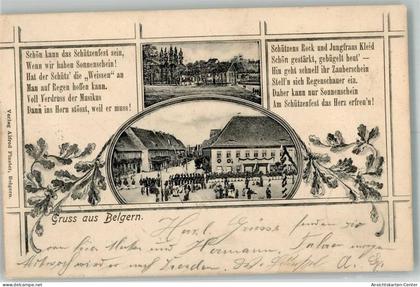 Schön kann das Schützenfest sein,
Wenn wir haben Sonnenschein!
Hat der Schütz' die „Weissen" an
Man auf Regen hoffen kann.
Voll Verdruss der Musikus
Dann ins Horn stösst, weil er muss!
Schützens Rock und Jungfraus Kleid
Schön gestärkt, gebügelt heut' —
Hin geht schnell ihr Zauberschein
Stell'n sich Regenschauer ein.
Daher kann nur Sonnenschein
Am Schützenfest das Herz erfreu'n!
Verlag Alfred Fischer, Belgern.
Gruss aus Belgern.
Herzl. Grüsse senden
Hermann,
Mittwoch wird er nach Dresden,
Ansichtskarten-Center